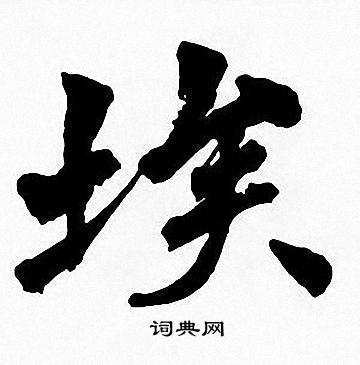 埃
词典网